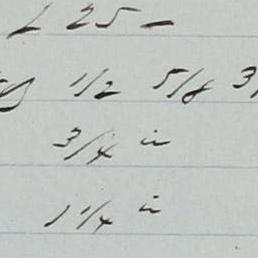 25 -
1/2 5/8 3/
3/4 in
1 1/4 in